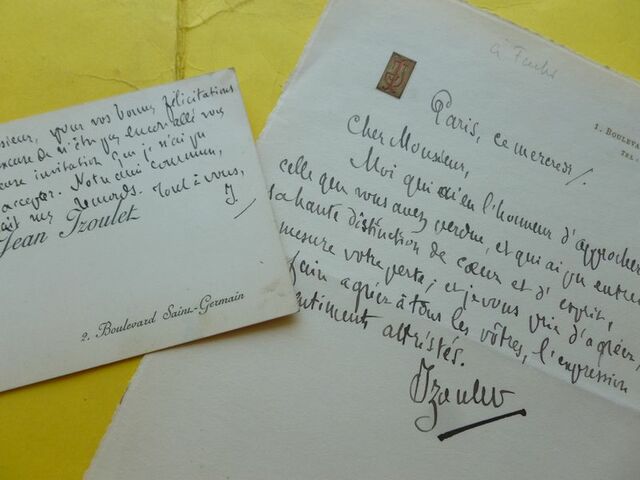 sieur, pour vos bonnes félicitations
excuse de n'être pas encore allé vous
euse invitation que je n'ai pu
accepter. Notre ami commun,
fait mes remords. Tout à vous,
J.
Jean Izoulet
2. Boulevard Saint-Germain
à Fuchs
1. BOULEVA
TEL.
Paris, ce mercredi
Cher Monsieur,
Moi qui ai eu l'honneur d'approcher
celle que vous avez perdue, et qui ai pu entre
sa haute distinction de cœur et d'esprit,
mesure votre perte; et je vous prie d'agréer,
faire agréer à tous les vôtres, l'expression
sentiments attristés.
Izoulet